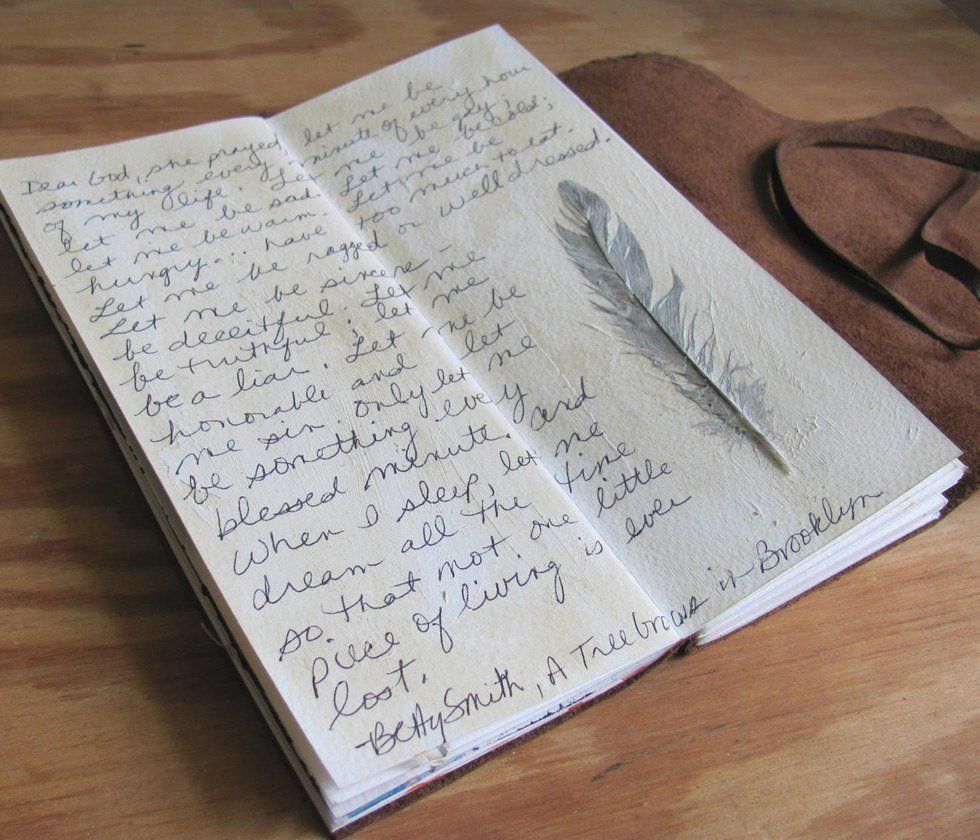 Dear God, she prayed, let me be
something every minute of every hour
of my life. Let me be gay;
let me be sad. Let me be cold;
let me be warm. Let me be
hungry... have too much to eat.
Let me be ragged or well dressed.
Let me be sincere -
be deceitful. Let me
be truthful; let me
be a liar. Let me be
honorable and let
me sin. only let me
be something every
blessed minute. And
when I sleep, let me
dream all the time
so that not one little
piece of living is ever
lost.
-Betty Smith, A Tree Grows in Brooklyn